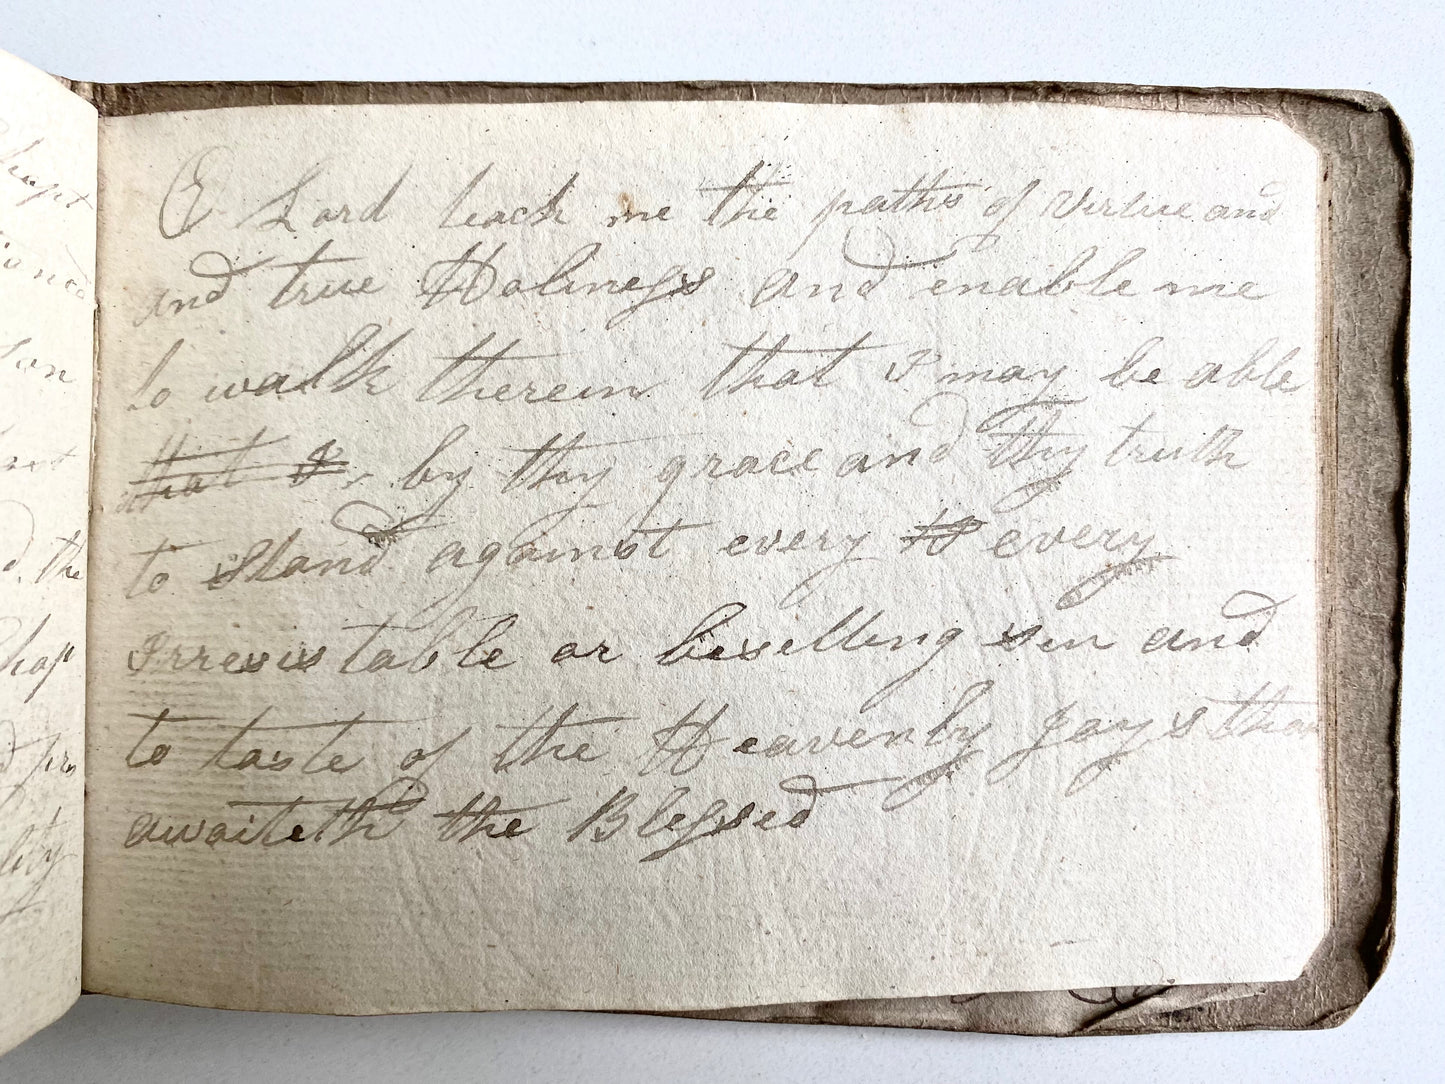 O Lord teach me the paths of virtue and
and true Holiness and enable me
to walk therein that I may be able
that I by thy grace and thy truth
to stand against every every
Irresistable or besetting sin and
to taste of the Heavenly Joys that
awaiteth the Blessed